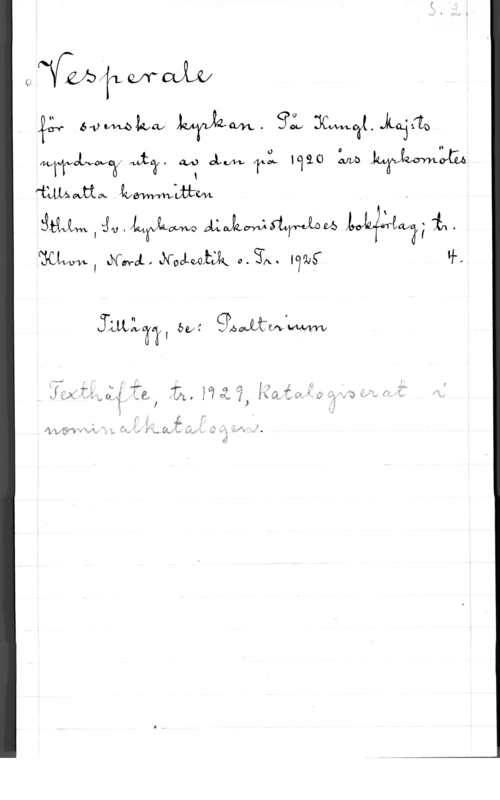 S. 2.
Vesperale
för svenska kyrkan. På Kungl. Maj:ts
uppdrag utg. av den på 1920 års kyrkomötes
tillsatta kommittén
Sthlm, Sv. kyrkans diakonistyrelses bokförlag; tr.
Khvn, Nord. Nodestik o. Tr. 1925 4.
Tillägg, se: Psalterium
Texthäfte, tr. 1929, Katalogiserat i
nominalkatalogen.